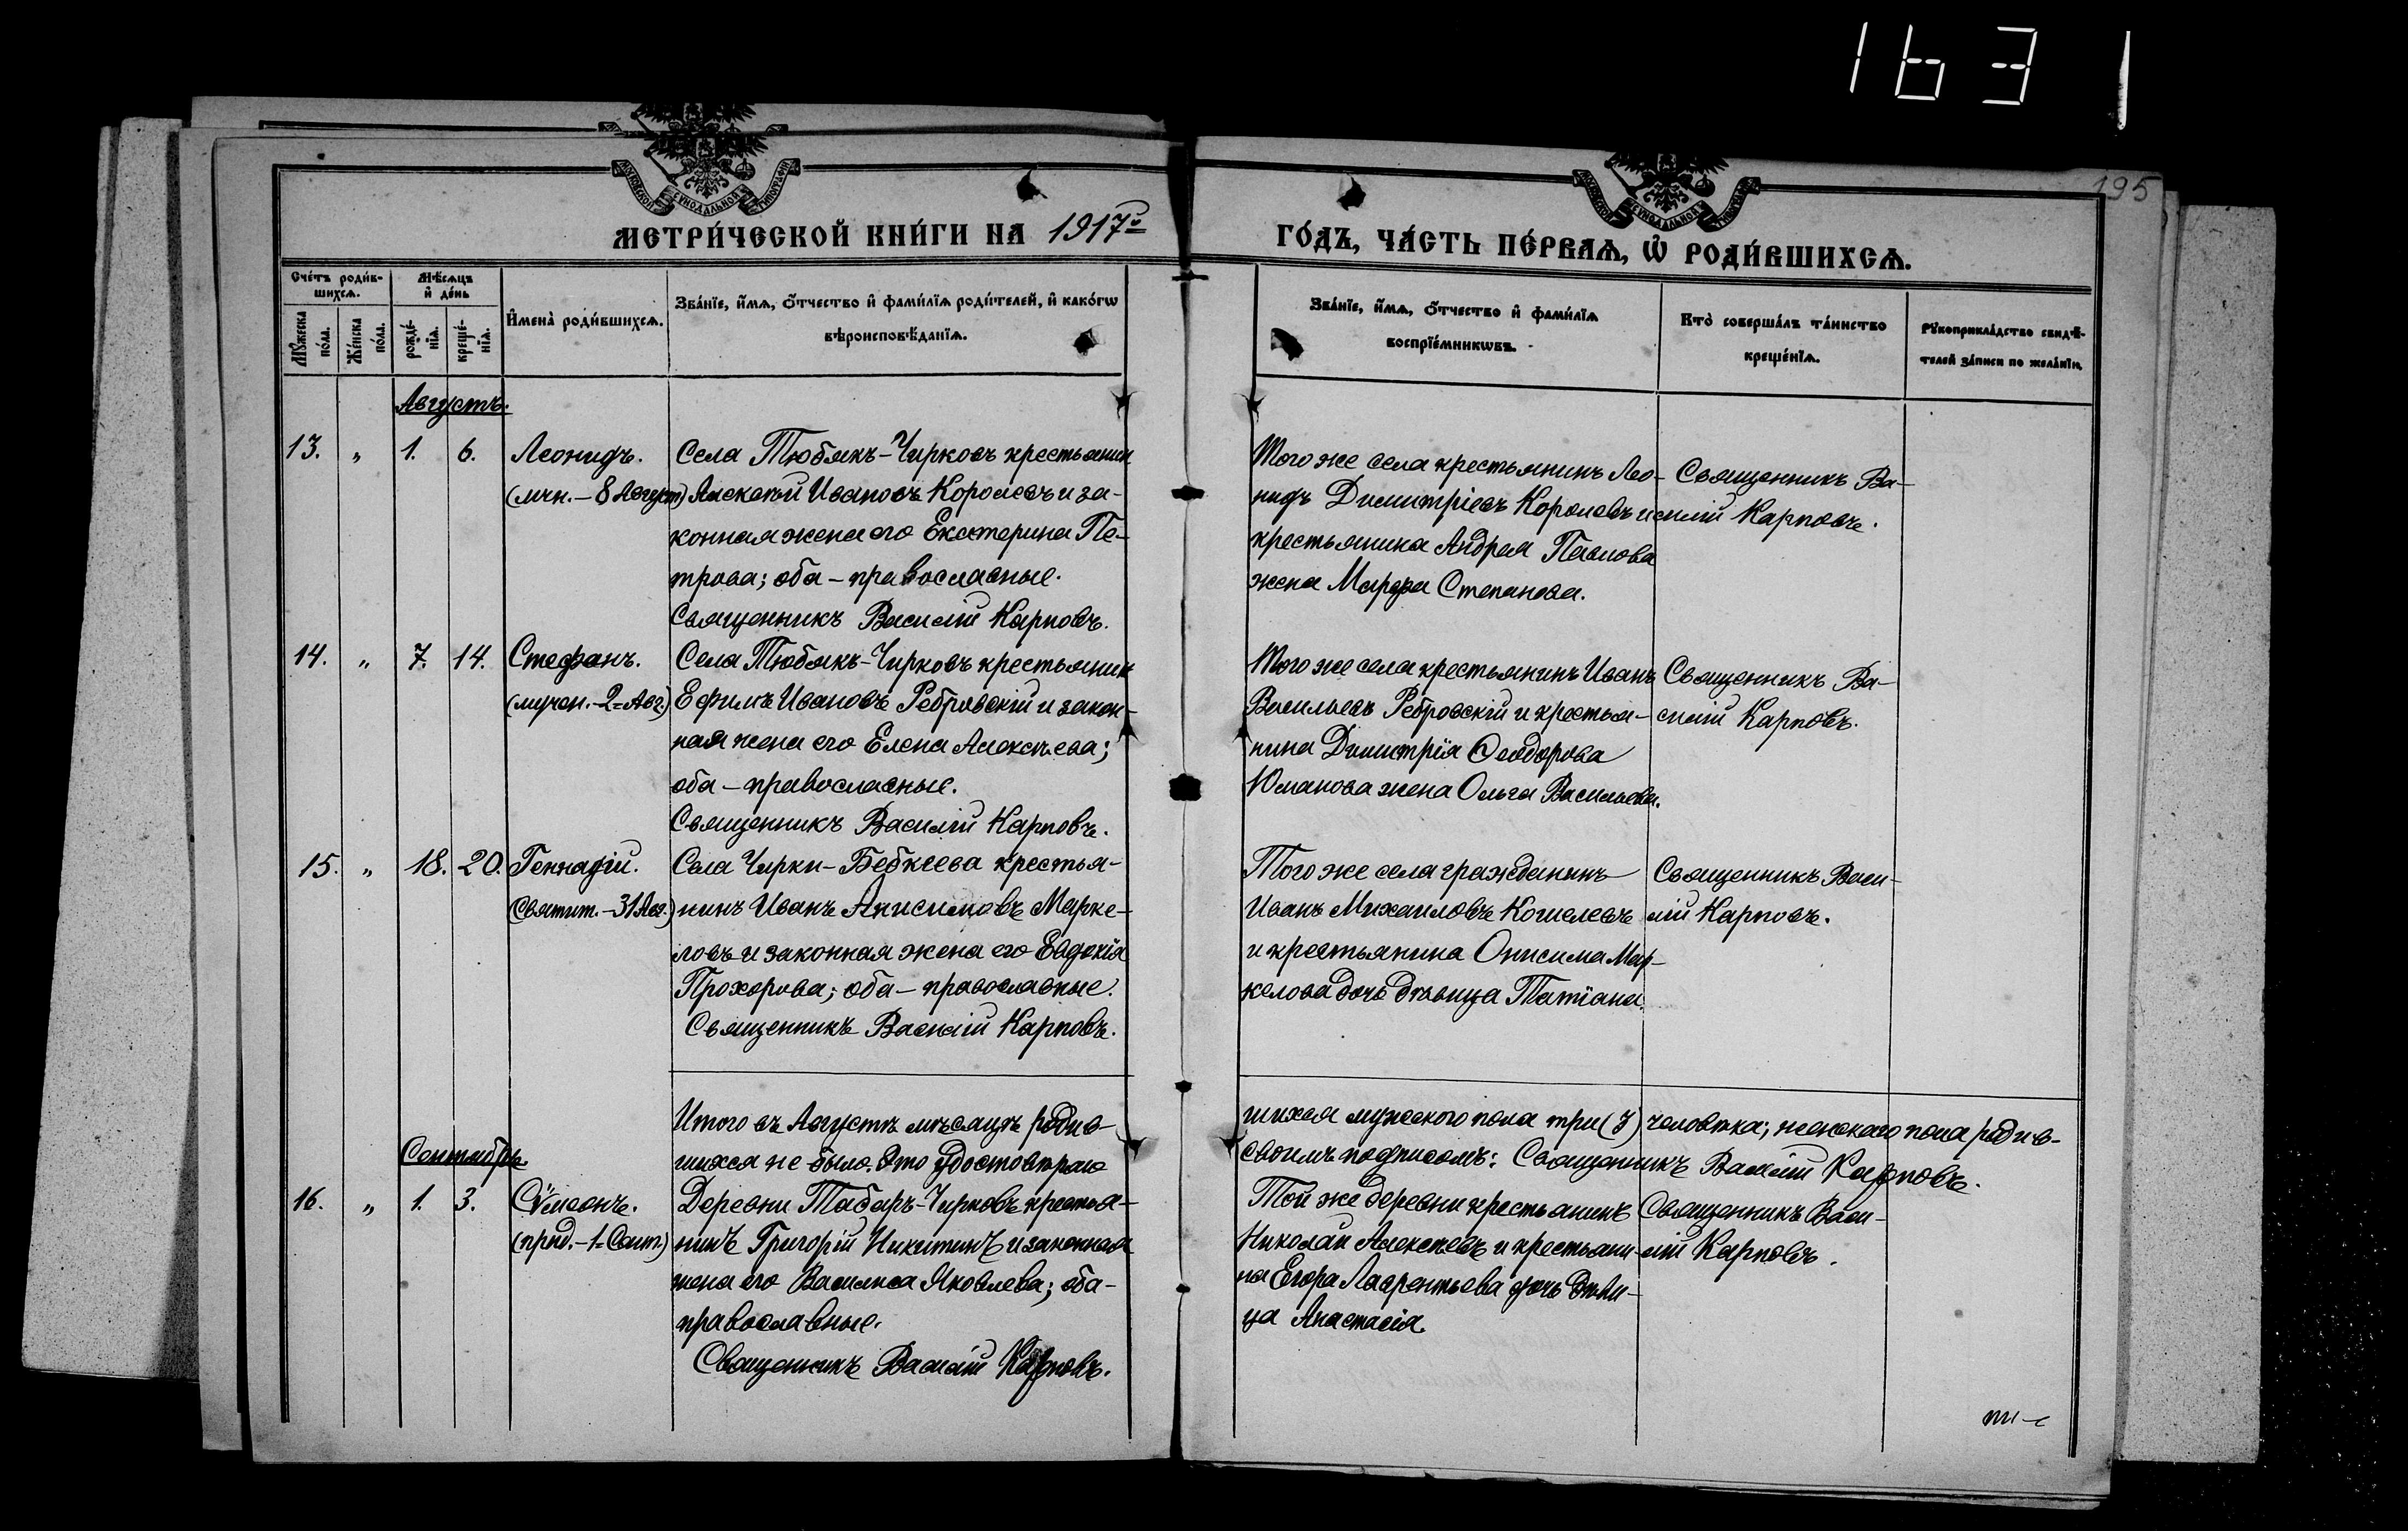 1631
195
МОСКОВСКОЙ СѴНОДАЛЬНОЙ ТИПОГРАФІИ
МОСКОВСКОЙ СѴНОДАЛЬНОЙ ТИПОГРАФІИ
МЕТРИ́ЧЕСКОЙ КНИ́ГИ НА 1917й
ГО́ДЪ, ЧА́СТЬ ПЕ́РВАѦ, Ѽ РОДИ́ВШИХСѦ.
Сче́тъ роди́в-
шихсѧ.
Мѣ́сѧцъ
и҆ де́нь
Мꙋ́жеска
по́ла.
Же́нска
по́ла.
рожде́-
нїѧ.
креще́-
нїѧ.
И҆мена̀ роди́вшихсѧ.
Зва́нїе, и҆́мѧ, ѻ҆́тчество и҆ фами́лїѧ роди́телей, и҆ како́гѡ
вѣроисповѣ́данїѧ.
Зва́нїе, и҆́мѧ, ѻ҆́тчество и҆ фами́лїѧ
воспрїе́мникѡвъ.
Кто̀ соверша́лъ та́инство
креще́нїѧ.
Рꙋкоприкла́дство свидѣ́-
телей за́писи по жела́нїю.
Августъ.
13. " 1. 6. Леонидъ.
(мчн. – 8 Август)
Села Тюбякъ-Чирковъ крестьянин
Алексѣй Ивановъ Королевъ и за-
конная жена его Екатерина Пе-
трова; оба – православные.
Священникъ Василій Карповъ.
Того же села крестьянинъ Лео-
нидъ Димитріевъ Королевъ и
крестьянина Андрея Павлова
жена Марѳа Степанова.
Священникъ Ва-
силій Карповъ.
14. " 7. 14. Стефанъ.
(мучен. – 2 = Авг.)
Села Тюбякъ-Чирковъ крестьянин
Ефимъ Ивановъ Ребровскій и закон-
ная жена его Елена Алексѣева;
оба – православные.
Священникъ Василій Карповъ.
Того же села крестьянинъ Иванъ
Васильевъ Ребровскій и крестья-
нина Димитрія Ѳеодорова
Юманова жена Ольга Васильева.
Священникъ Ва-
силій Карповъ.
15. " 18. 20. Геннадій.
(Святит. – 31 Авг.)
Села Чирки-Бебкеева крестья-
нинъ Иванъ Анисимовъ Марке-
ловъ и законная жена его Евдокія
Прохорова; оба – православные.
Священникъ Василій Карповъ.
Того же села гражданинъ
Иванъ Михаиловъ Кошелевъ
и крестьянина Онисима Мар-
келова дочь дѣвица Татіана.
Священникъ Васи-
лій Карповъ.
Итого въ Августѣ мѣсяцѣ родив-
шихся мужеского пола три (3) человѣка; женскаго пола родив-
шихся не было. Это удостовѣряю
своимъ подписомъ: Священникъ Василій Карповъ.
Сентябрь
16. " 1. 3. Сѵмеонъ.
(прпд. – 1 = Сент.)
Деревни Табаръ-Чирковъ крестья-
нинъ Григорій Никитинъ и законная
жена его Василиса Яковлева; оба –
православные.
Священникъ Василій Карповъ.
Той же деревни крестьянинъ
Николай Алексѣевъ и крестьяни-
на Егора Лаврентьева дочь дѣви-
ца Анастасія.
Священникъ Васи-
лій Карповъ.